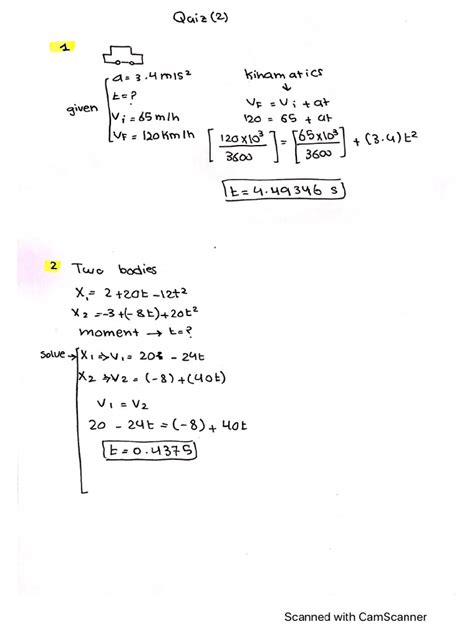 Quiz (2)
1
given
a = 3.4 m/s²
t = ?
Vi = 65 m/h
VF = 120 km/h
Kinamatics
↓
VF = Vi + at
120 = 65 + at
[120×10³/3600] = [65×10³/3600] + (3.4)t²
t = 4.49346 s
2 Two bodies
X₁ = 2 + 20t - 12t²
X₂ = -3 + (-8t) + 20t²
moment → t = ?
Solve → X₁ ⇒ V₁ = 20 - 24t
X₂ ⇒ V₂ = (-8) + (40t)
V₁ = V₂
20 - 24t = (-8) + 40t
t = 0.4375
Scanned with CamScanner